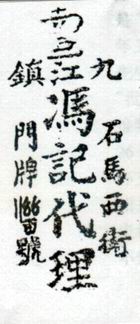 南
九江鎮
石馬西街
馮記代理
門牌號